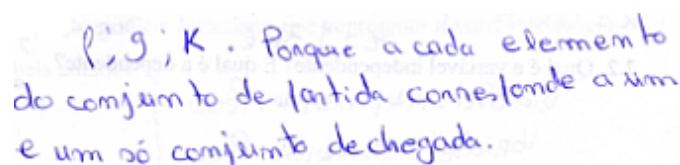 f; g; K. Porque a cada elemento
do conjunto de partida corresponde a um
e um só conjunto de chegada.